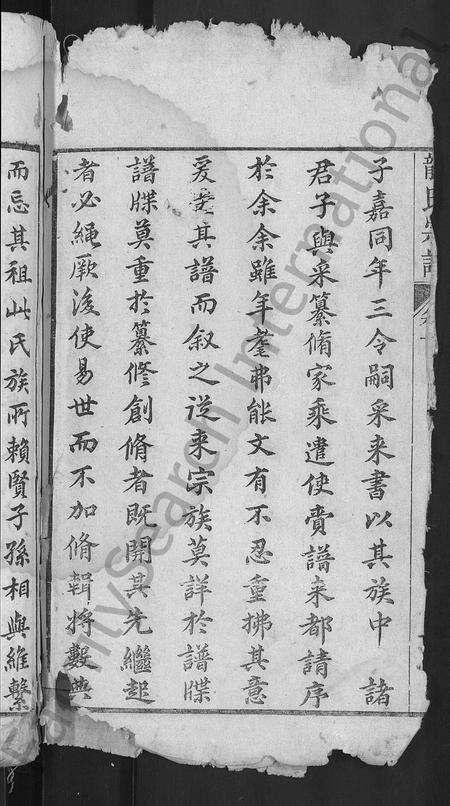 龍氏宗譜
子嘉同年三令嗣采来書以其族中　諸
君子與采纂脩家乘遣使賫譜来都請序
於余余雖年耄弗能文有不忍重拂其意
爰其譜而叙之従来宗族莫詳於譜牒
譜牒莫重於纂修創脩者既開其先繼起
者必繩厥後使易世而不加脩輯將數典
而忘其祖此氏族所賴賢子孫相與維繫
FamilySearch International